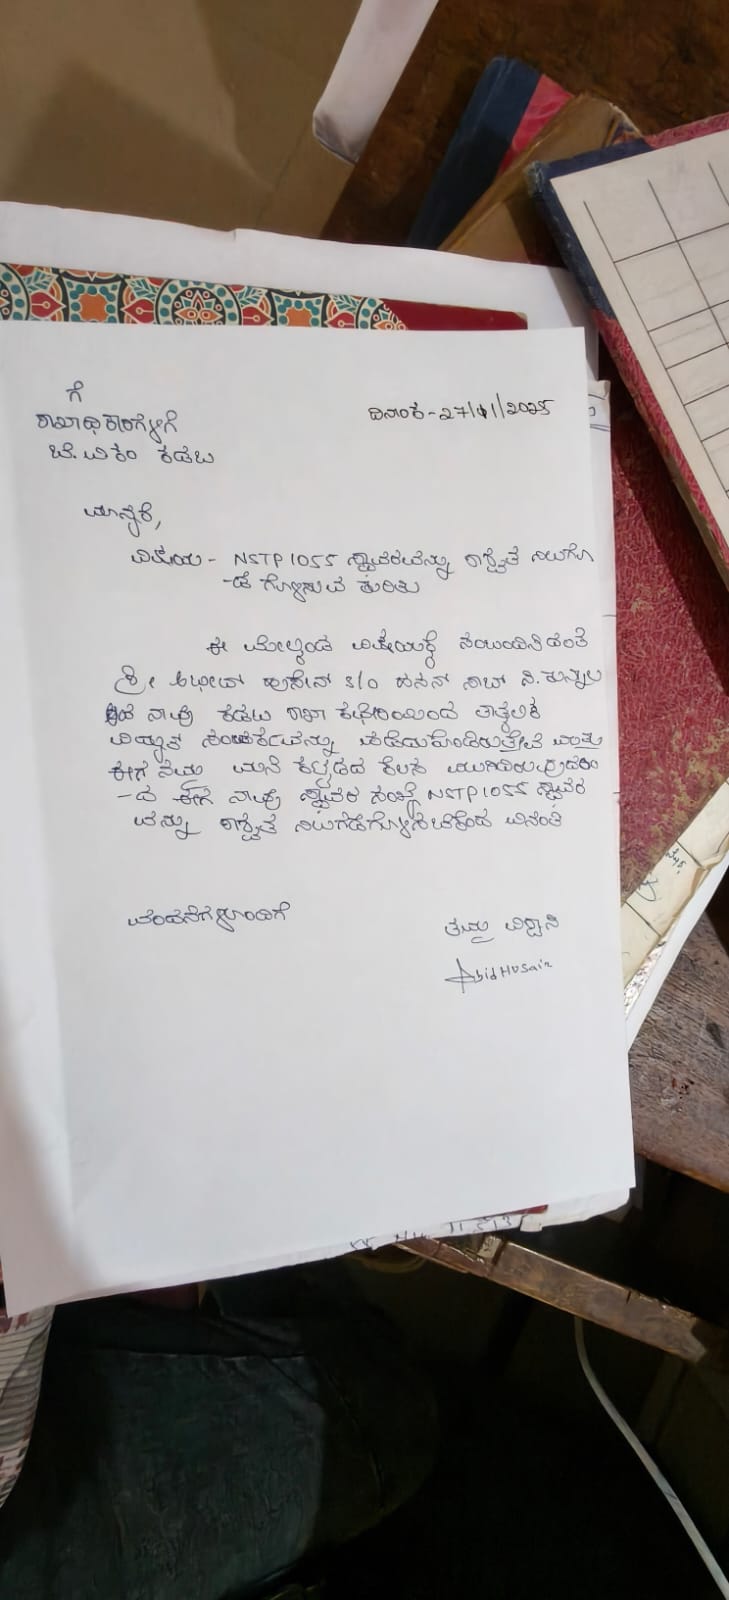 ಗೆ
ಶಾಖಾಧಿಕಾರಿಗಳಿಗೆ
ದಿನಾಂಕ-27/01/2025
ಬೆ.ವಿ.ಕಂ ಕಡಬ
ಮಾನ್ಯರೆ,
ವಿಷಯ- NSTP1055 ಸ್ಥಾವರವನ್ನು ಶಾಶ್ವತ ನಿಲುಗ
-ಡೆ ಗೊಳಿಸುವ ಕುರಿತು
ಈ ಮೇಲ್ಕಂಡ ವಿಷಯಕ್ಕೆ ಸಂಬಂದಿಸಿದಂತೆ
ಶ್ರೀ ಅಬೀದ್ ಹುಸೇನ್ S/o ಹಸನ್ ಸಾಬ್
ನಾವು ಕಡಬ ಶಾಖಾ ಕಛೇರಿಯಿಂದ ತಾತ್ಕಲಿಕ
ವಿದ್ಯುತ್ ಸಂಪರ್ಕವನ್ನು ಪಡೆದುಕೊಂಡಿರುತ್ತೇವೆ ಮತ್ತು
ಈಗ ನಮ್ಮ ಮನೆ ಕಟ್ಟಡದ ಕೆಲಸ ಮುಗಿದಿರುವುದರಿಂ
-ದ ಈಗ ನಾವು ಸ್ಥಾವರ ಸಂಖ್ಯೆ NSTP1055 ಸ್ಥಾವರ
ವನ್ನು ಶಾಶ್ವತ ನಿಲುಗಡೆಗೊಳಿಸಬೇಕೆಂದ ವಿನಂತಿ
ವಂದನೆಗಳೊಂದಿಗೆ
ತಮ್ಮ ವಿಶ್ವಾಸಿ
AbidHusain